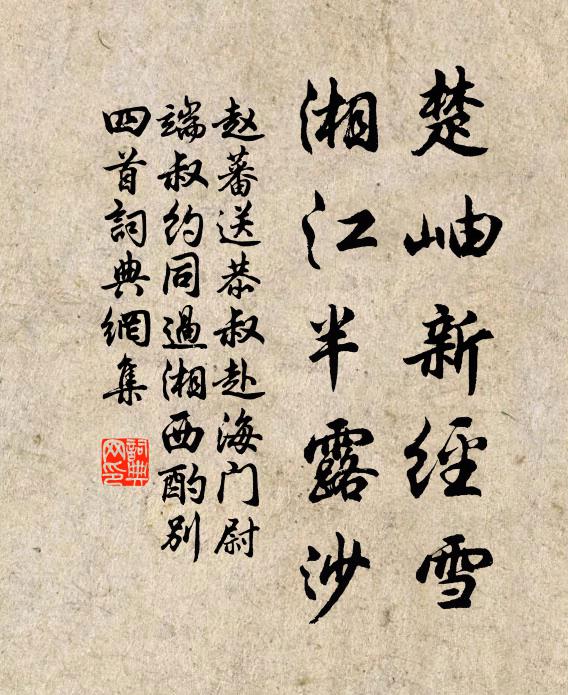 楚岫新經雪
湘江半露沙
赵蕃送恭叔赴海门尉
端叔约同過湘西酌别
四首詞典網集
詞典网印